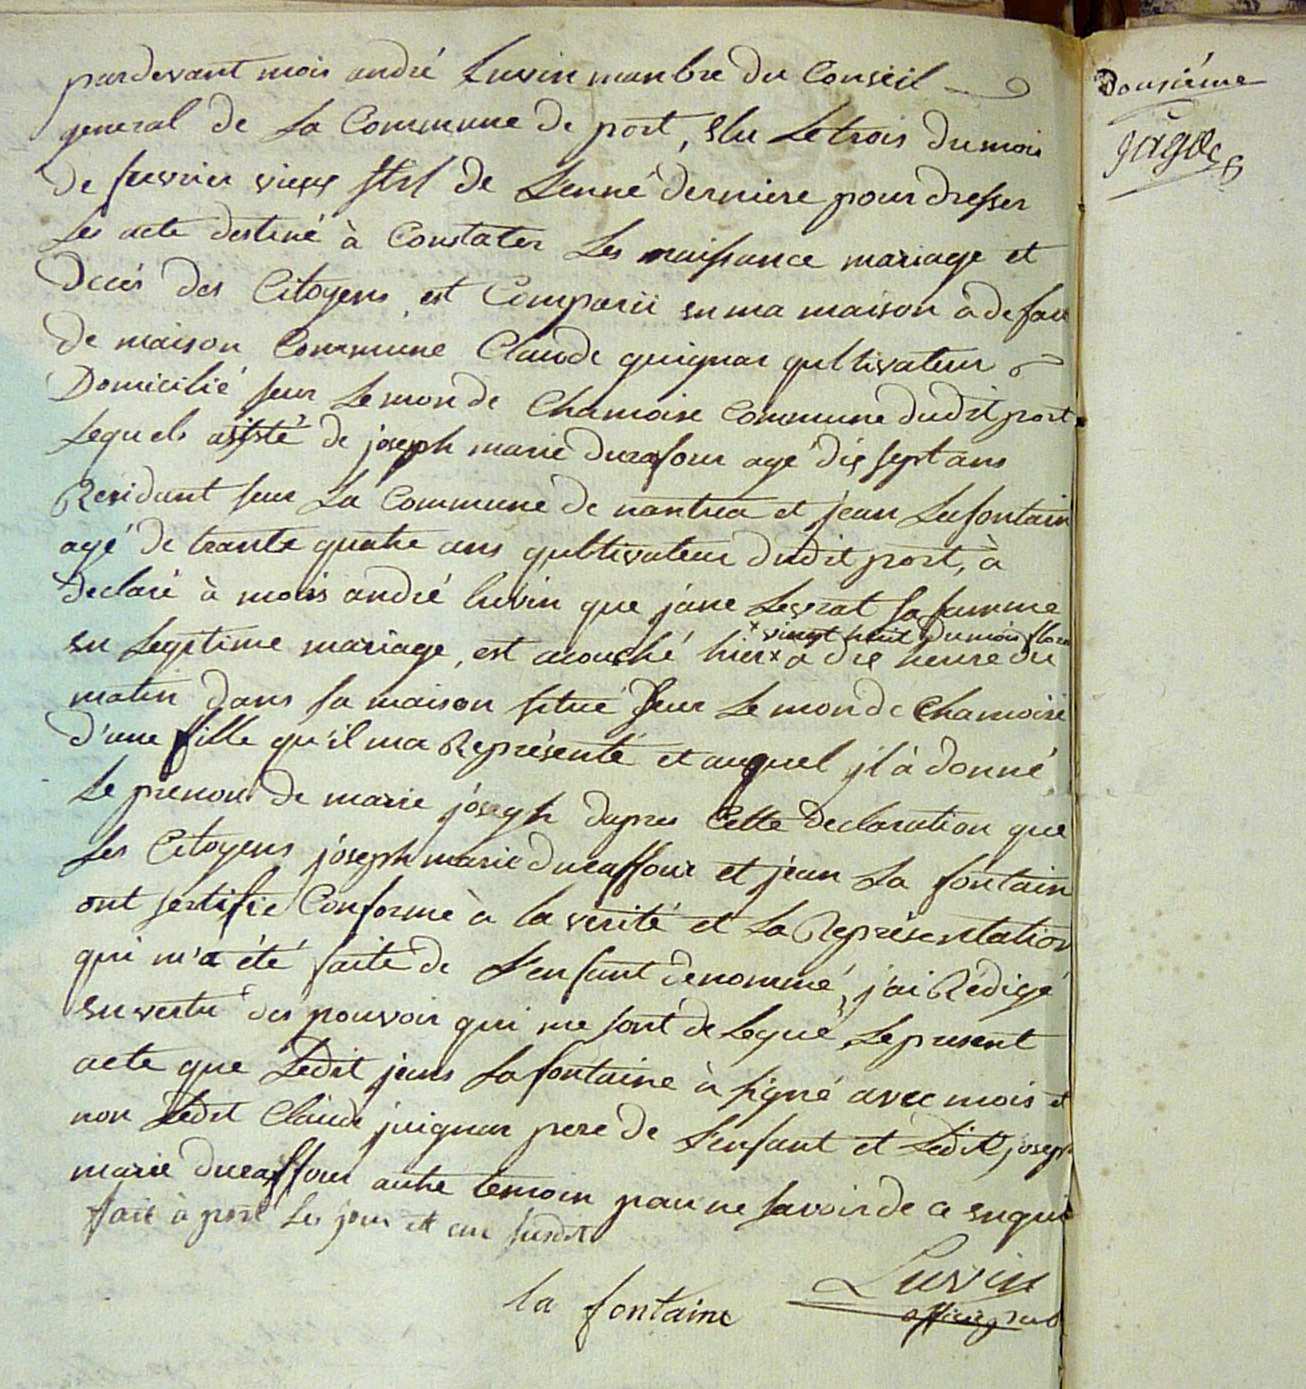 pardevant mois andré Luvin manbre du Conseil
general de La Commune de port, Elu Le trois du mois
de fevrier vieux stil de Lenné derniere pour dresser
Les acte destiné à Constater Les naissance mariage et
decés des Citoyens est Comparü en ma maison à defau
de maison Commune Claude guignar qultivateur
Domicilié seur Le mon de Chamoise Commune dudit port
Lequels assisté de joseph marie durafour agé dix sept ans
Residant seur La Commune de nantua et jean Lafontain
agé de trante quatre ans qultivateur dudit port, à
declaré à mois andré Luvin que jane Leserat sa famme
x vingt huit du mois flore
en Legitime mariage, est acouché hier x a dix heure du
matin dans sa maison situé seur Le mon de Chamoise
d'une fille qu'il ma Représenté et auquel jl à donné
Le prenom de marie joseph dapres Cette declaration que
Les Citoyens joseph marie duraffour et jean La fontain
ont sertifie Conforme à la verité et La Représentation
qui m'a été faite de L'enfant denommé, j'ai Rédigé
en vertu des pouvoir qui me sont delegué, Le present
acte que Ledit jean Lafontaine à signé avec mois et
non Ledit Claude juignar pere de L'enfant et Ledit joseph
marie duraffour autre temoin pour ne savoir de ce enqui
fait à port Les jour et an susdit
la fontaine
Luvin
officier pub
Dousiéme